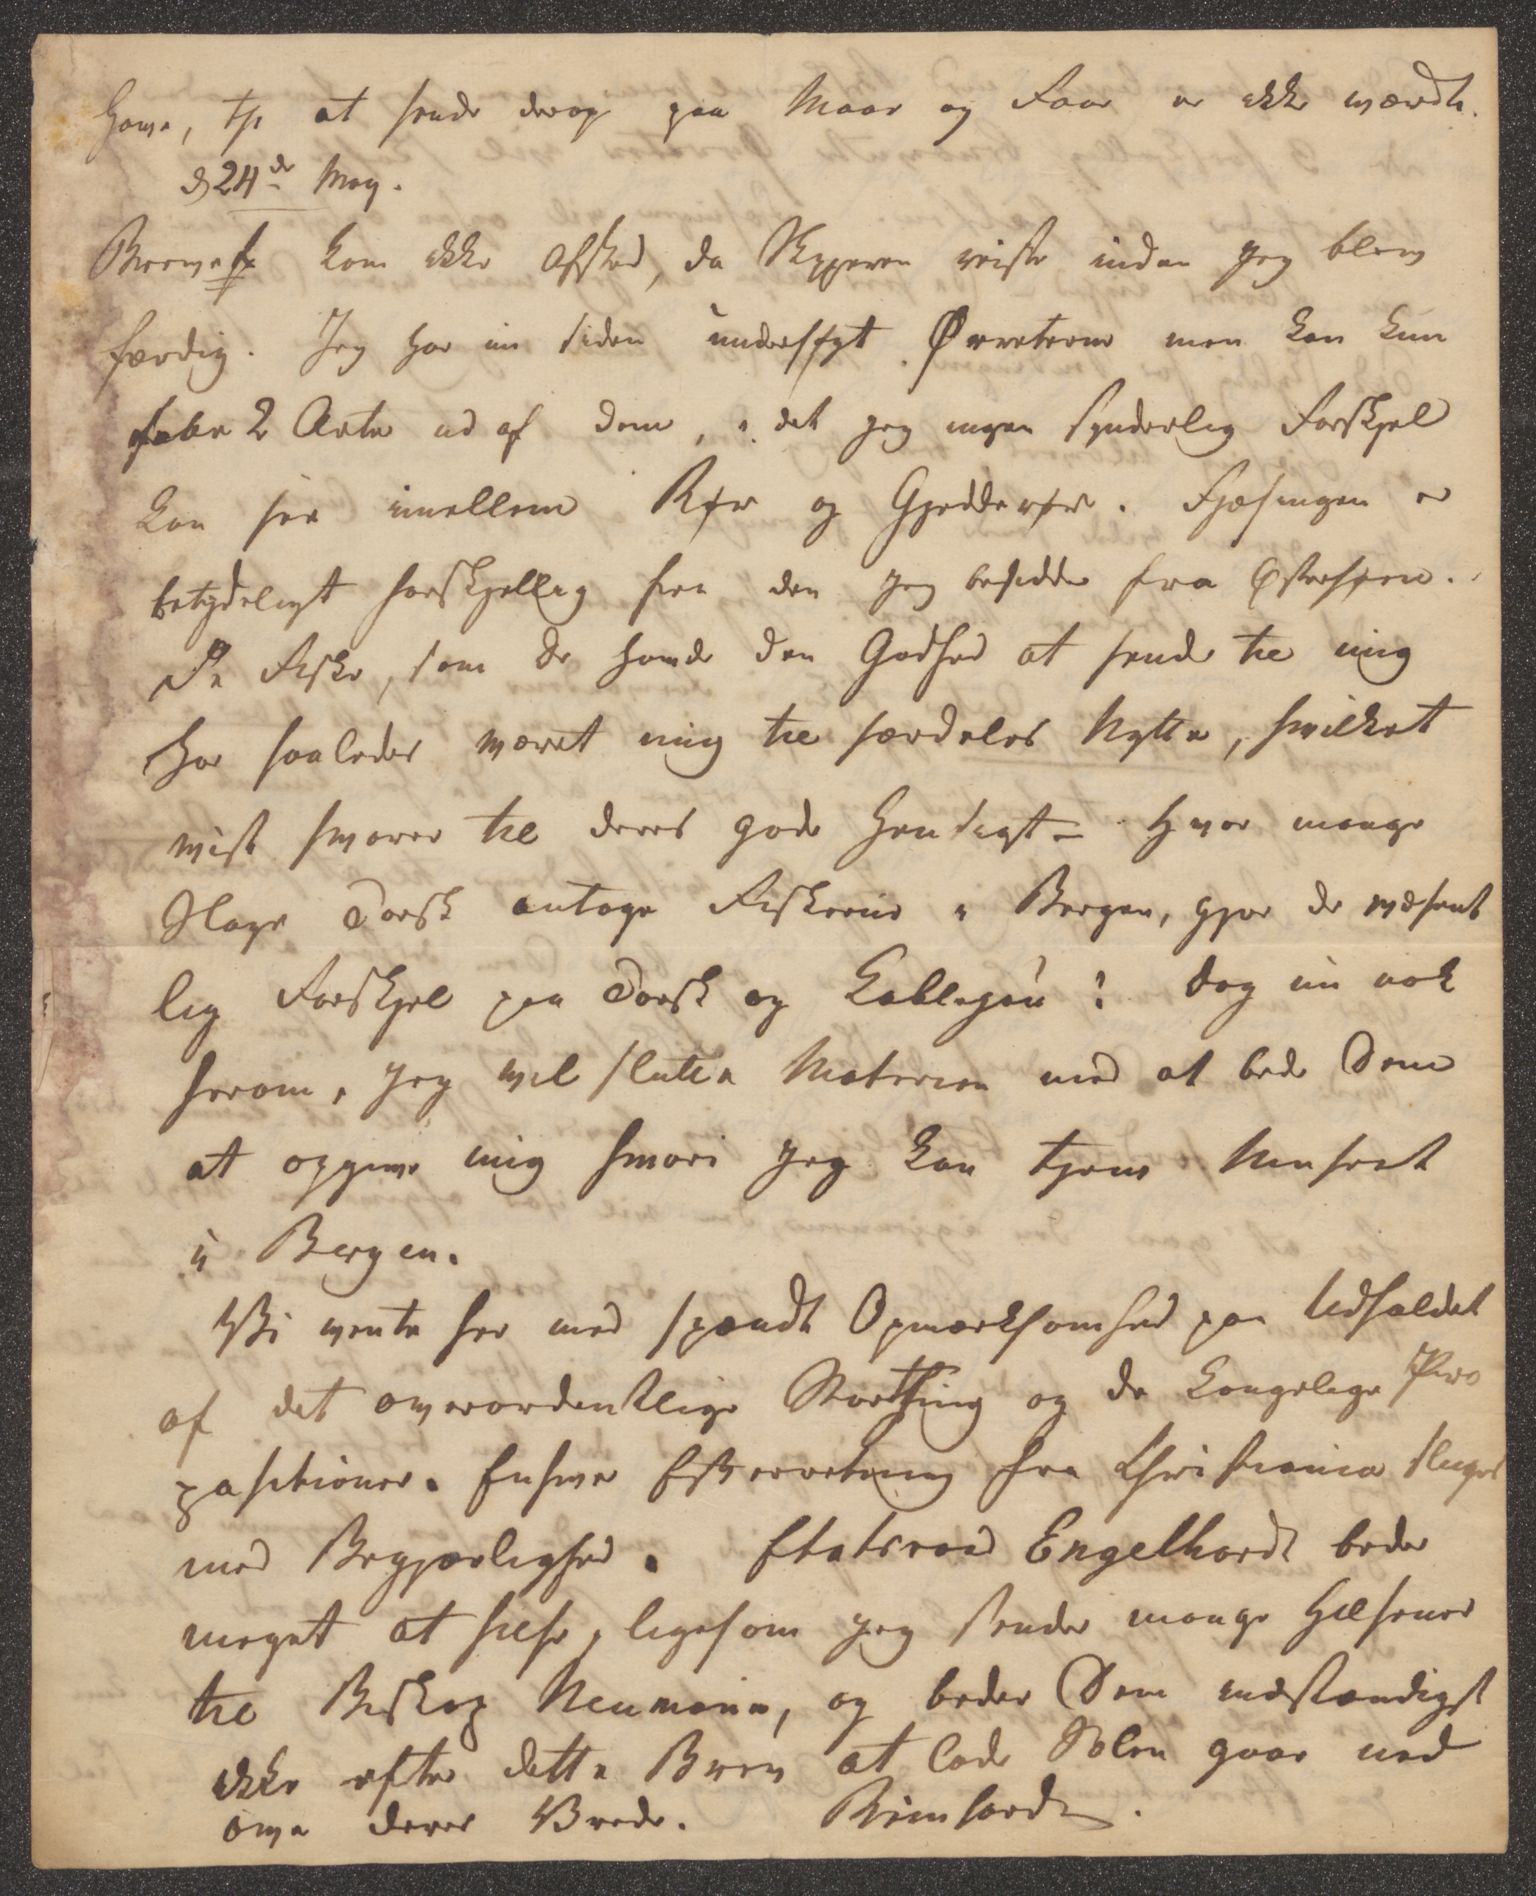 have, thi at sende derop paa Maae og Faae er ikke værdt.
d 24de May.
Brevet kom ikke afsted, da Skipperen reiste inden jeg blev
færdig. Jeg har nu siden undersøgt Ørreterne men kan kun
faae 2 Arter ud af dem, i det jeg ingen synderlig Forskjel
kan see imellem Rør og Gjedderør. Fjæsingen er
betydeligt forskjellig fra den jeg besidder fra Østersøen.
De Fiske, som De havde den Godhed at sende til mig
har saaledes været mig til særdeles Nytte, hvilket
vist svarer til deres gode Hensigt - Hvor mange
Slags Torsk antage Fiskerne i Bergen, gjør de væsent
lig Forskjel paa Torsk og Kabliau? dog nu nok
herom, jeg vil slutte Materien med at bede Dem
at opgive mig hvori jeg kan tjene Museet
i Bergen.
Vi vente her med spændt Opmærksomhed paa Udfaldet
af det overordentlige Storthing og de kongelige Pro
positioner. Enhver Efterretning fra Christiania sluges
med Begjærlighed. Etatsraad Engelhardt beder
meget at hilse, ligesom jeg sender mange Hilsener
til Biskop Neumann, og beder Dem indstændigst
ikke efter dette Brev at lade Solen gaae ned
over deres Vrede. Reinhardt.